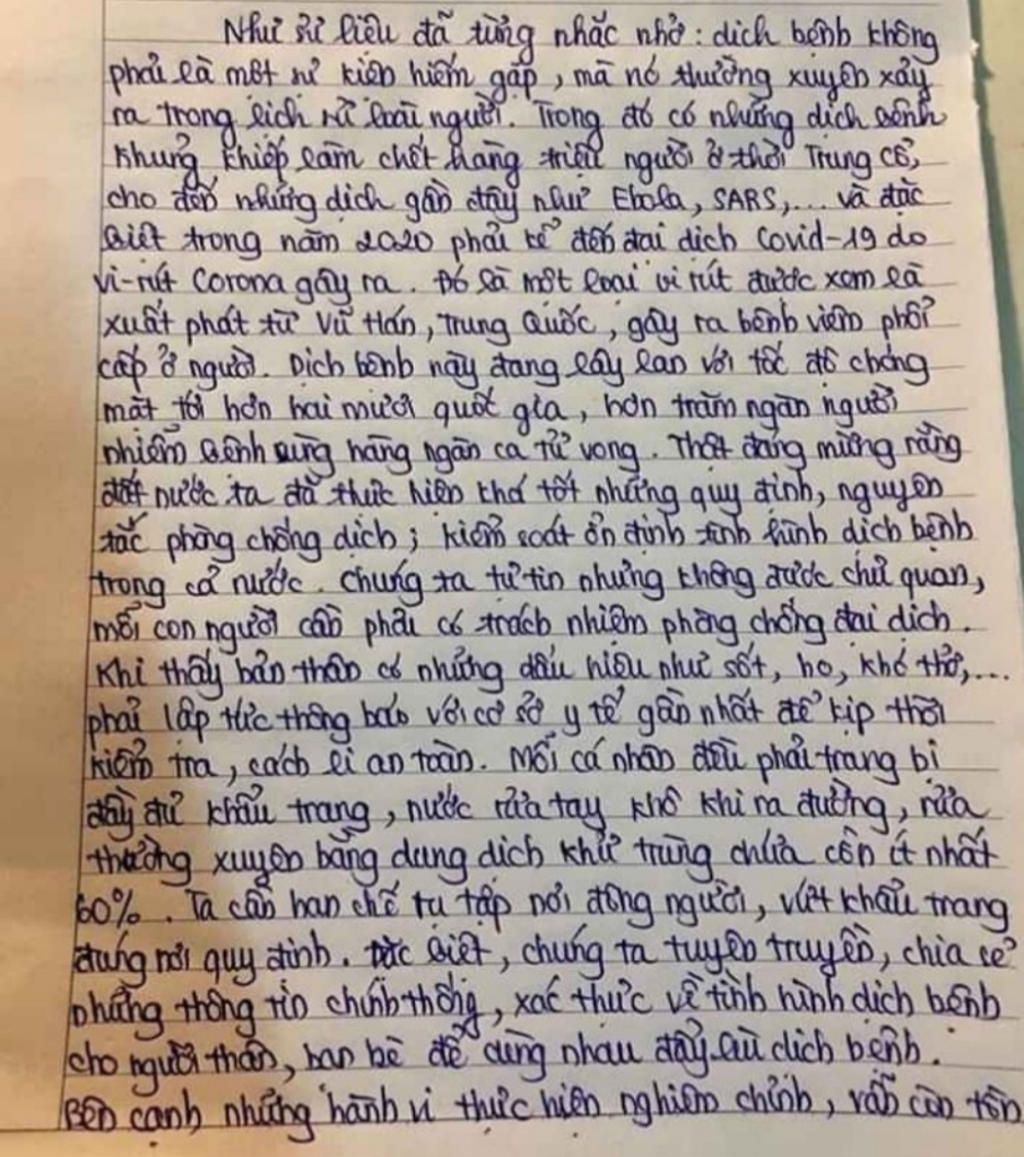 Như sử liệu đã từng nhắc nhở: dịch bệnh không
phải là một sự kiện hiếm gặp, mà nó thường xuyên xảy
ra trong lịch sử loài người. Trong đó có những dịch bệnh
khủng khiếp làm chết hàng triệu người ở thời Trung Cổ,
cho đến những dịch gần đây như Ebola, SARS,... và đặc
biệt trong năm 2020 phải kể đến đại dịch Covid-19 do
vi-rút Corona gây ra. Đó là một loại vi rút được xem là
xuất phát từ Vũ Hán, Trung Quốc, gây ra bệnh viêm phổi
cấp ở người. Dịch bệnh này đang lây lan với tốc độ chóng
mặt tới hơn hai mươi quốt gia, hơn trăm ngàn người
nhiễm bệnh cùng hàng ngàn ca tử vong. Thật đáng mừng rằng
đất nước ta đã thực hiện khá tốt những quy định, nguyên
tắc phòng chống dịch; kiểm soát ổn định tình hình dịch bệnh
trong cả nước. Chúng ta tự tin nhưng không được chủ quan,
mỗi con người cần phải có trách nhiệm phòng chống đại dịch.
Khi thấy bản thân có những dấu hiệu như sốt, ho, khó thở,...
phải lập tức thông báo với cơ sở y tế gần nhất để kịp thời
kiểm tra, cách li an toàn. Mỗi cá nhân đều phải trang bị
đầy đủ khẩu trang, nước rửa tay khô khi ra đường, rửa
thường xuyên bằng dung dịch khử trùng chứa cồn ít nhất
60%. Ta cần hạn chế tụ tập nơi đông người, vứt khẩu trang
đúng nơi quy định. Đặc biệt, chúng ta tuyên truyền, chia sẻ
những thông tin chính thống, xác thực về tình hình dịch bệnh
cho người thân, bạn bè để cùng nhau đẩy lùi dịch bệnh.
Bên cạnh những hành vi thực hiện nghiêm chỉnh, vẫn còn tồn